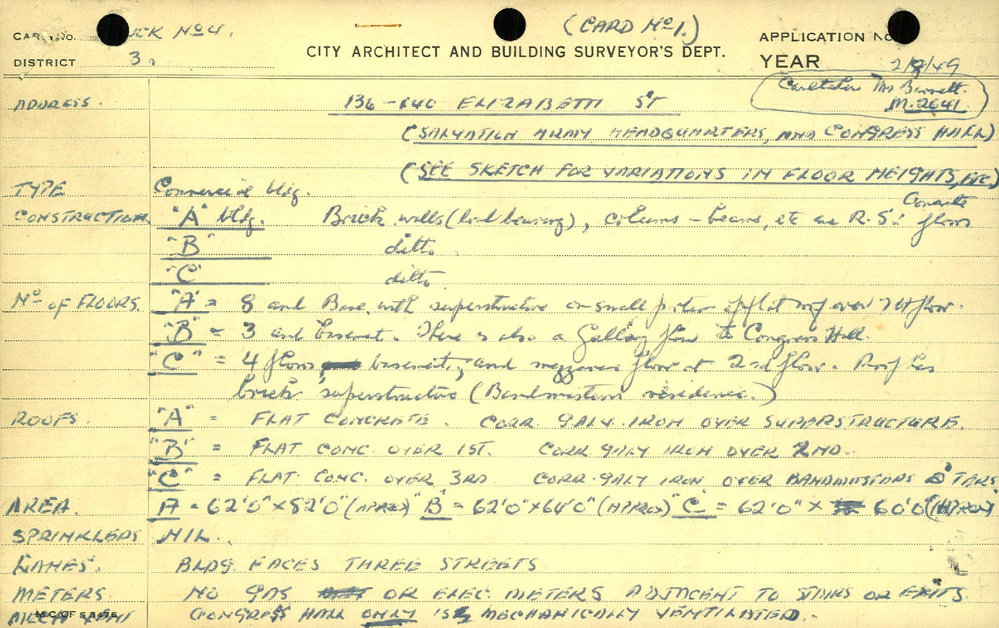 (CARD No 1.)
CARD No. No 4.
APPLICATION No
CITY ARCHITECT AND BUILDING SURVEYOR'S DEPT.
DISTRICT 3.
YEAR 2/8/49
Caretaker Mr Barrett.
M.2641
ADDRESS. 136-140 ELIZABETH ST
(SALVATION ARMY HEADQUARTERS, AND CONGRESS HALL)
(SEE SKETCH FOR VARIATIONS IN FLOOR HEIGHTS, ETC)
TYPE Commercial bldg.
CONSTRUCTION "A" bldg. Brick walls (load bearing), columns - beams, etc are R.S: Concrete floors
"B" ditto
"C" ditto
No OF FLOORS. "A" = 8 and Base. with superstructure on small portion of flat roof over 7th floor.
"B" = 3 and basement. There is also a Gallery floor to Congress Hall.
"C" = 4 floors, basement, and mezzanine floor at 2nd floor. Roof has
brick superstructure (Bandmasters residence.)
ROOFS "A" = FLAT CONCRETE. CORR. GALV. IRON OVER SUPERSTRUCTURE
"B" = FLAT CONC. OVER 1ST. CORR GALV IRON OVER 2ND.
"C" = FLAT CONC. OVER 3RD CORR. GALV IRON OVER BANDMASTERS
AREA. A = 62'0" x 82'0" (APROX) "B" = 62'0" x 64'0" (APROX) "C" = 62'0" x 60'0" (APROX)
SPRINKLERS NIL.
LANES. BLDG FACES THREE STREETS
METERS NO GAS OR ELEC METERS ADJACENT TO STAIRS OR EXITS.
MECH VENT CONGRESS HALL ONLY IS MECHANICALLY VENTILATED.